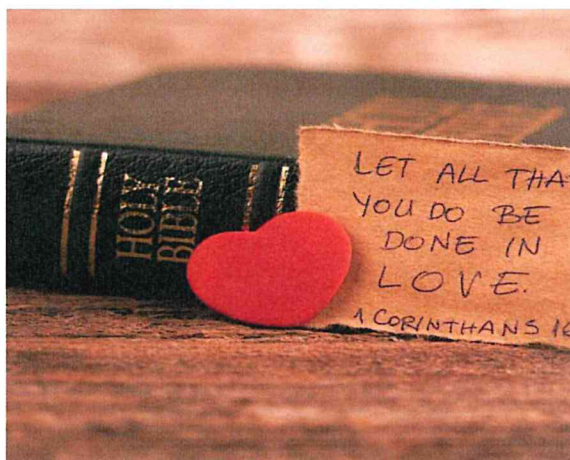 HOLY
BIBLE
LET ALL THA
YOU DO BE
DONE IN
LOVE.
1 CORINTHANS 16